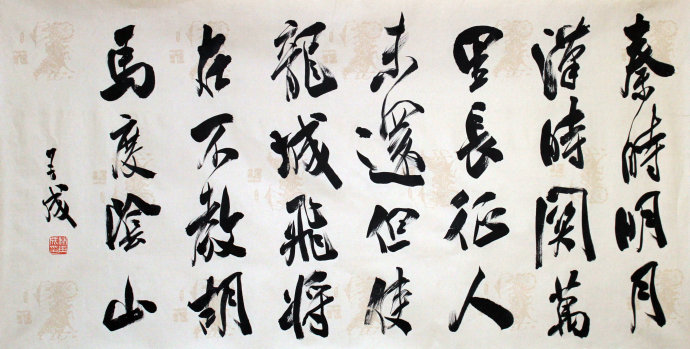 秦時明月
漢時関萬
里長征人
未還但使
龍城飛将
在不教胡
馬度陰山